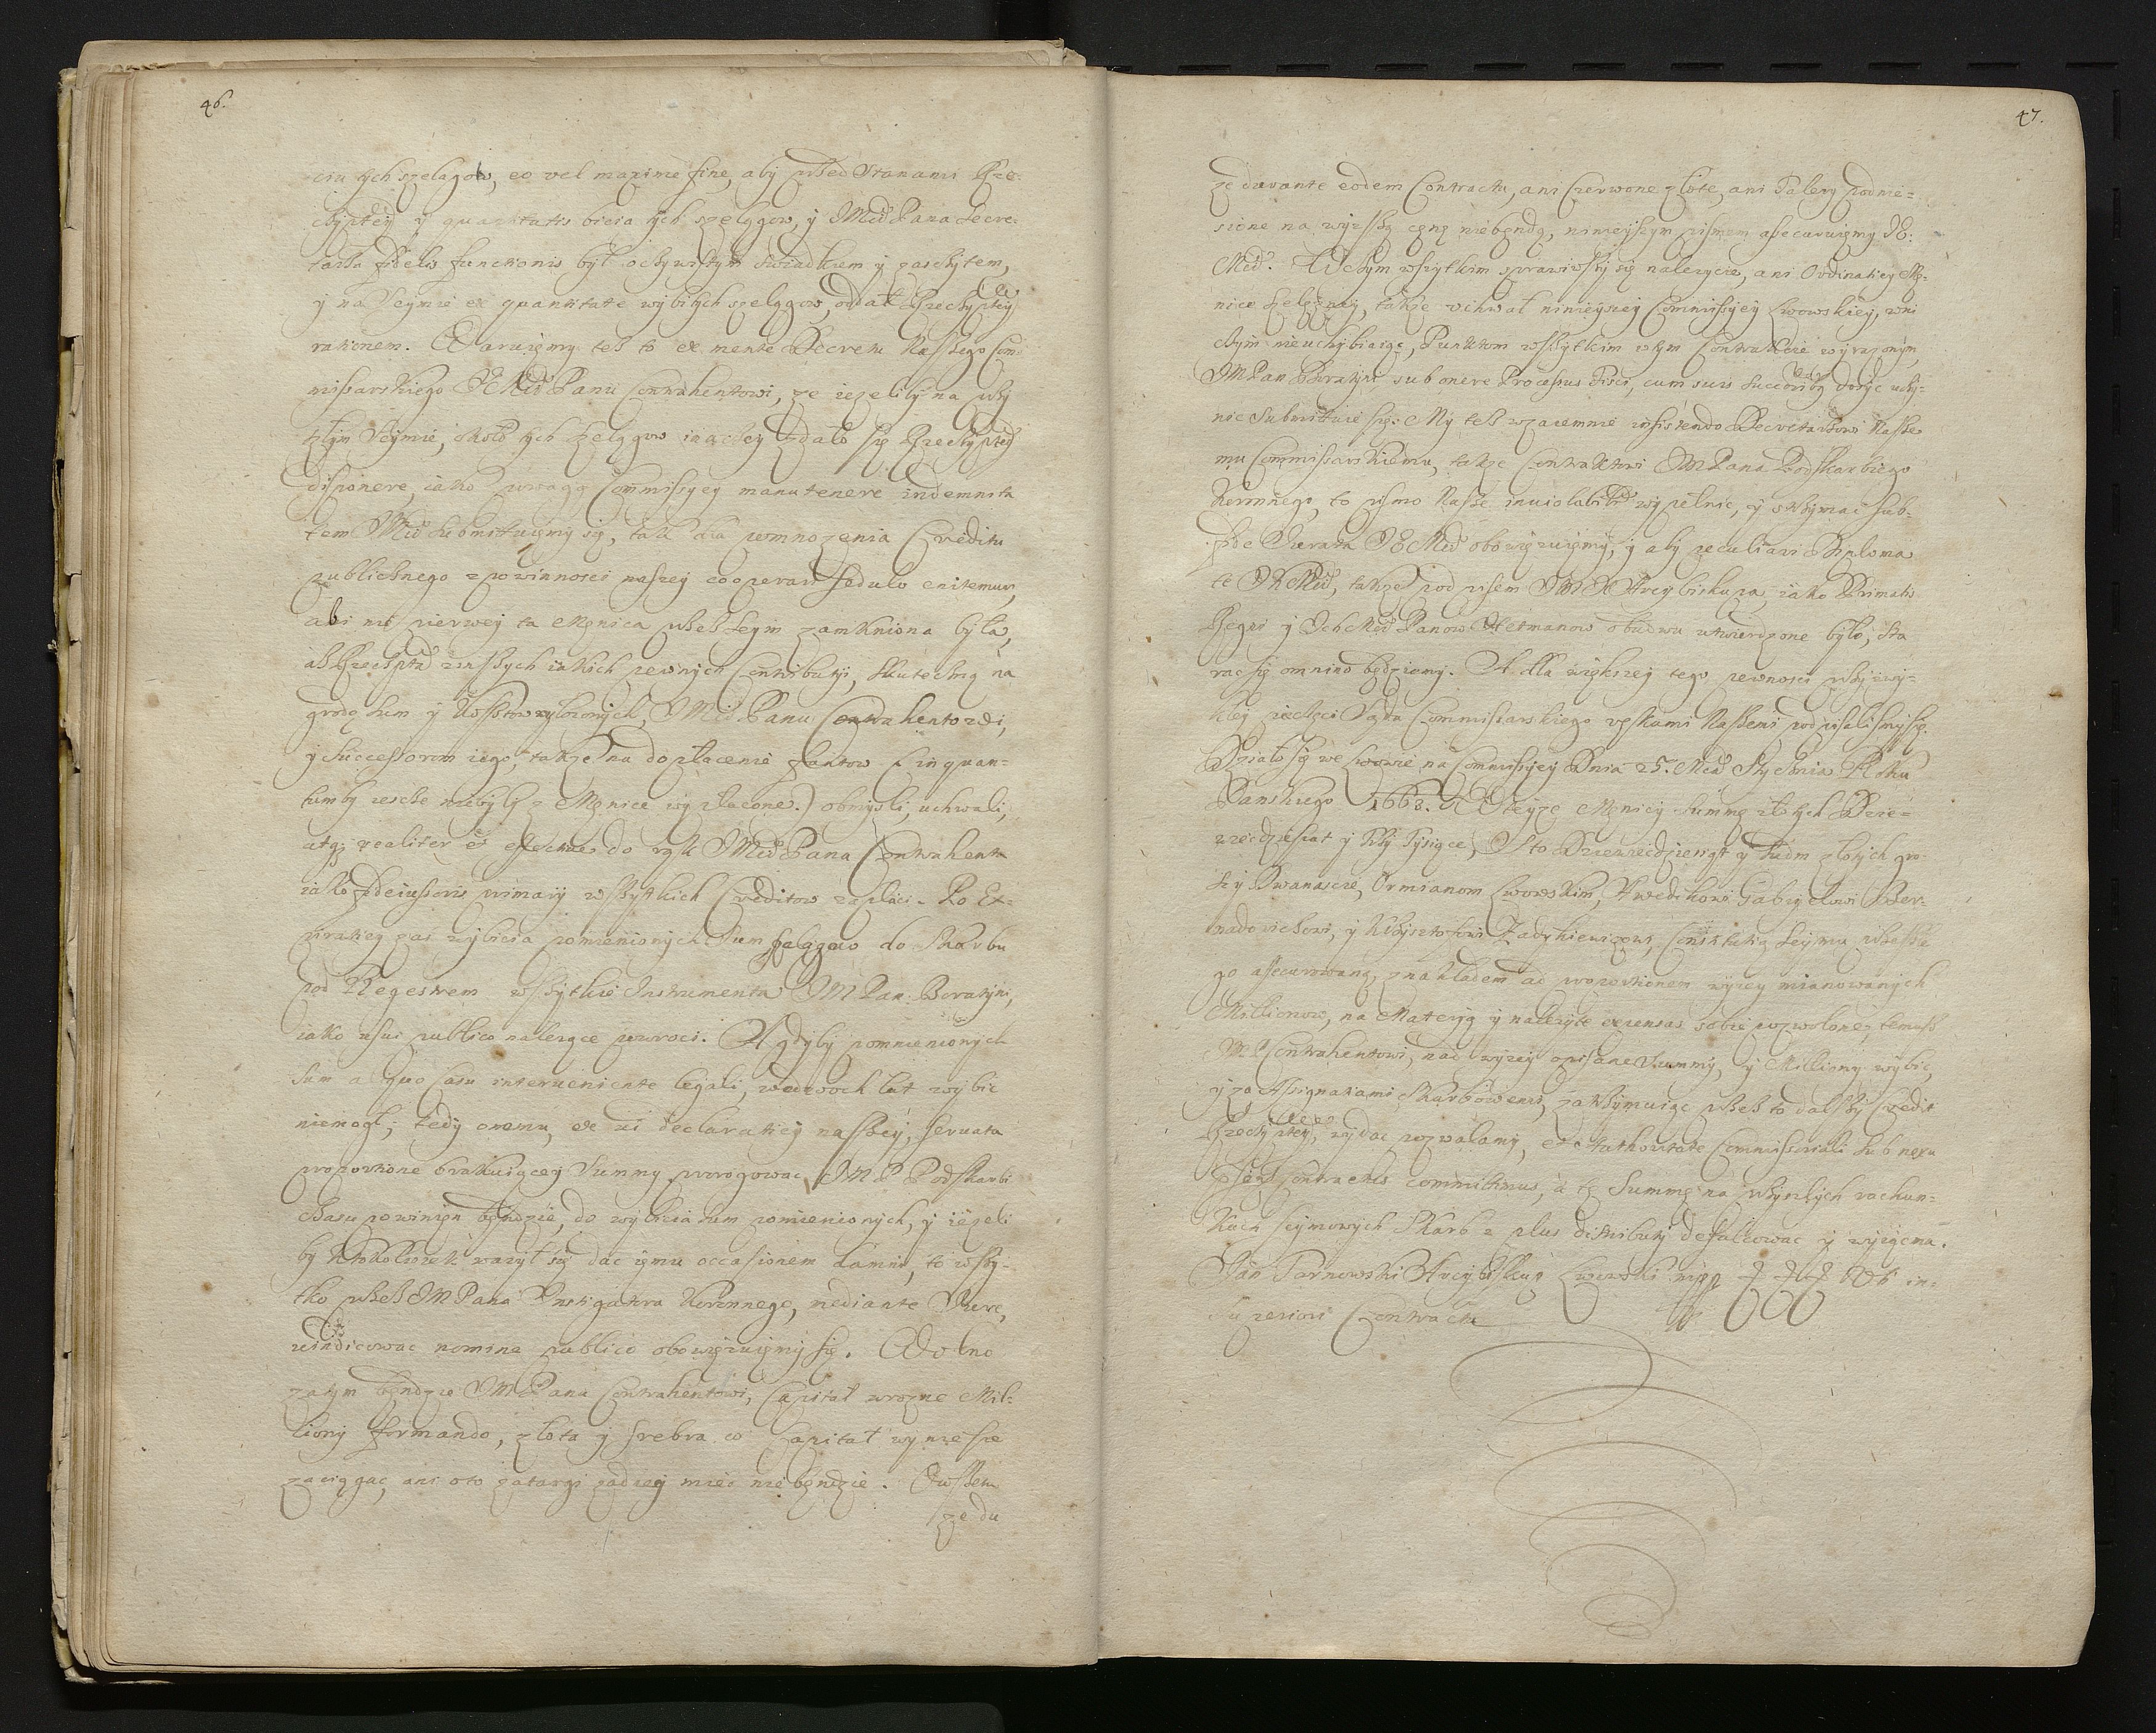 46.
ciu tych szelągow, eo vel maxime fine, aby przed Stanami Rze-
czyptey y quantitatis bicia tych szelągow, y JMci Pana Secre-
tarza fidelis functionis był oczywistym swiadkiem y zaszczytem,
y na Seymie ex quantitate wybitych szelągow, oddał Rzeczyptey
rationem. Waruiemy tesz to ex mente Decretu Naszego Com-
missarskiego JEMci Panu Contrahentowi, ze iezeliby na przy
szłym Seymie, około tych szelągow inaczey zdało się Rzeczyptey
disponere, iako uwagą Commissyey manutenere indemnita
tem JMci submituiemy się, tak dla pomnozenia Creditu
publicznego z powinnosci naszey cooperari sedulo enitemur,
abi nie pierwey ta Męnica przesz Seym zamkniona była,
asz Rzeczpta z inszych iakich pewnych Contributij, skuteczną na
grodę sum y kosztow wyłozonych, JMci Panu Contrahentowi,
y Successorom iego, takze na dopłacenie fantow (in quan-
tumby iescze niebyły z Męnice wypłacone.) obmysli, uchwali,
atq; realiter et effective do rąk JMci Pana Contrahenta
iako fideiussoris primarij wszytkich Creditow zapłaci. Po Ex-
piratiey zas wybicia pomienionych Sum szelągow do Skarbu
pod Regestrem wszytkie Instrumenta JMPan Boratyni,
iako usui publico nalezące powroci. A gdyby pomnienionych
Sum aliquo casu interueniente legali, we dwoch lat wybic
niemogł; tedy onemu, ex vi declaratiey naszey, seruata
proportione brakuiącey Summy, prorogowac JMP Podskarbi
czasu powinien będzie, do wybicia sum pomienionych, y iezeli
by ktokolwiek wazył się dac iemu occasionem damni, to wszy-
tko przesz JMPana Instigatora Koronnego, mediante Jure,
vindicowac nomine publico obowięzuiemy się. Wolno
zatym będzie JMPanu Contrahentowi, Capitał w rozne Mil-
liony formando, złota y srebra co Capitał wyniesie
zaciągac, ani oto zatargi zadney miec nie będzie. Owszem
ze du
47.
ze durante eodem Contractu, ani Czerwone złote, ani Talery podnie-
sione na wyzszą cenę niebędą, ninieyszym pismem assecuruiemy JE:
Mci. W czym wszytkim sprawiwszy się nalezycie, ani Ordinatiey Mę-
nice szelązney, takze uchwał ninieyszey Commissyey Lwowskiey, w ni
czym nieuchybiaiąc, Punktom wszytkim w tym Contrakcie wyrazonym,
JMPan Boratyni sub onere Processus Fisci, cum suis Succoribq dosyc uczy-
nic submittuie się: My tesz wzaiemnie insistendo Decretarzowi Nasze
mu Commissarskiemu, takze Contraktowi JMPana Podskarbiego
Koronnego, to pismo Nasze inuiolabiliter wypełnic, y utrzymac sub
fide Jurata JEMci obowięzuiemy, y aby peculiari Diploma
te JKMci, takze pod pisem JMX Arcybiskupa, iako Primatis
Regni y IchMci Panow Hetmanow obudwu utwierdzone było, sta
rac się omnino będziemy. A dla większey tego pewnosci przy zwy-
kłey pieczęci Sądu Commissarskiego rękami Naszemi podpisalismy się.
Działo się we Lwowie na Commissyey Dnia 25. Mca Stycznia Roku
Panskiego 1663. W teyze Męnicy Summę złotych Dzie-
więcdziesiąt y trzy Tysiące, Sto Dziewięcdziesiąt y siedm złotych gro-
szy Dwanascie, Ormianom Lwowskim, Awedikowi Gabryelowi Ber-
nadowiczowi, y Krzysztofowi Zadykiewiczowi, Constitutią Seymu przeszłe
go assecurowaną, z nakładem ad proportionem wyzey mianowanych
Millionow, na Materyą y nalezyte expensas sobie pozwolone, temusz
MPContrahentowi, nad wyzey opisane Summy, y Milliony wybic,
y za Assignatiami Skarbowemi, zatrzymuiąc przesz to dalszy Credit
Rzeczyptey, wydac pozwalamy, et Authoritate Commissoriali sub nexu
Contractus committimus, a tę Summę na przyszłych rachun-
kach seymowych Skarb z plus distributy defalcowac y wyiąc ma.
Jan Tarnowski Arcybiskup Lwowski mpp Ut in-
superiori Contractu